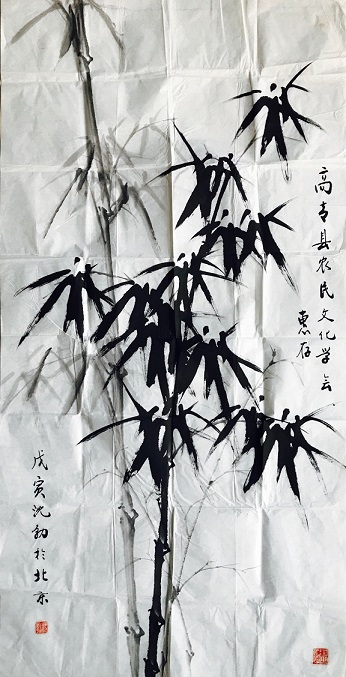 高青县农民文化学会
惠存
戊寅沈勃於北京